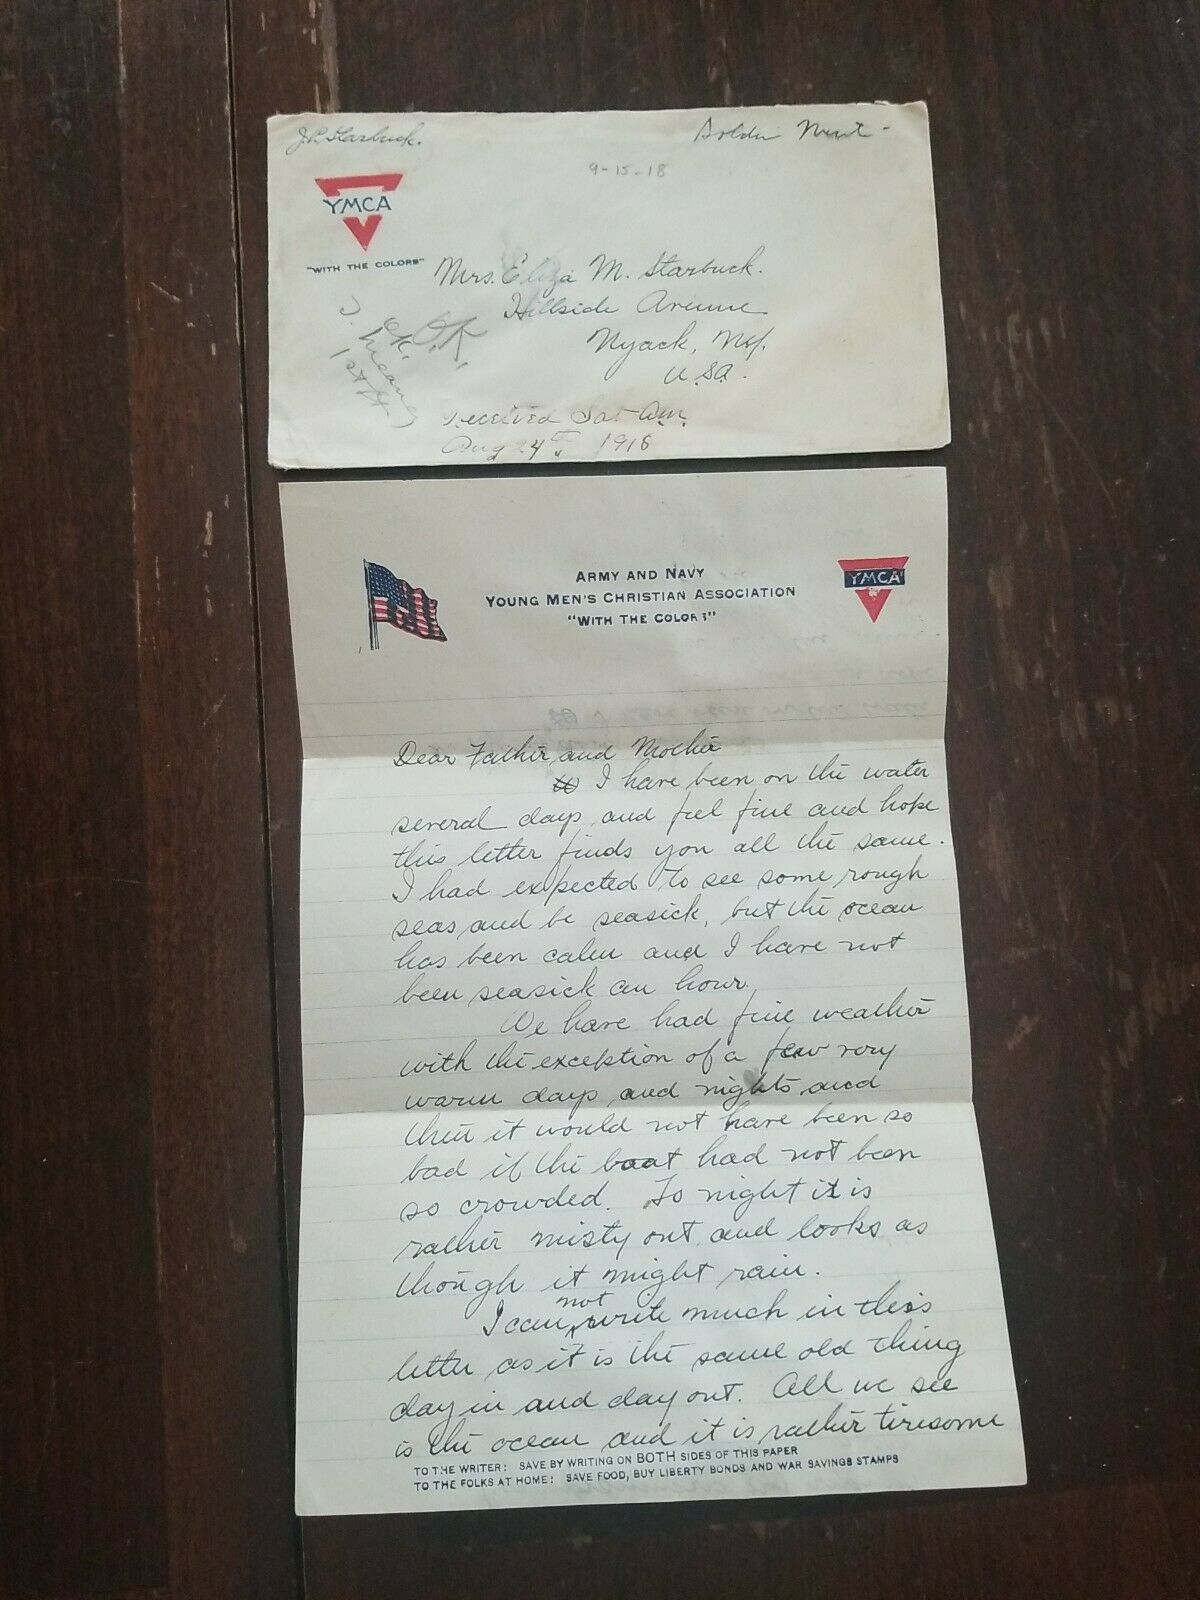 J. P. Starbuck.
9-15-18
YMCA
"WITH THE COLORS"
Mrs. Eliza M. Starbuck.
Hillside Avenue
Nyack, N.Y.
U.S.A.
O.K.
O.K.
1st Lt
Received Sat A.M.
Aug 24th 1918
ARMY AND NAVY
YOUNG MEN'S CHRISTIAN ASSOCIATION
"WITH THE COLORS"
YMCA
Dear Father and Mother
I have been on the water
several days and feel fine and hope
this letter finds you all the same.
I had expected to see some rough
seas and be seasick, but the ocean
has been calm and I have not
been seasick an hour.
We have had fine weather
with the exception of a few very
warm days and nights and
then it would not have been so
bad if the boat had not been
so crowded. To night it is
rather misty out and looks as
though it might rain.
I can not write much in this
letter as it is the same old thing
day in and day out. All we see
is the ocean and it is rather tiresome
TO THE WRITER: SAVE BY WRITING ON BOTH SIDES OF THIS PAPER
TO THE FOLKS AT HOME: SAVE FOOD, BUY LIBERTY BONDS AND WAR SAVINGS STAMPS